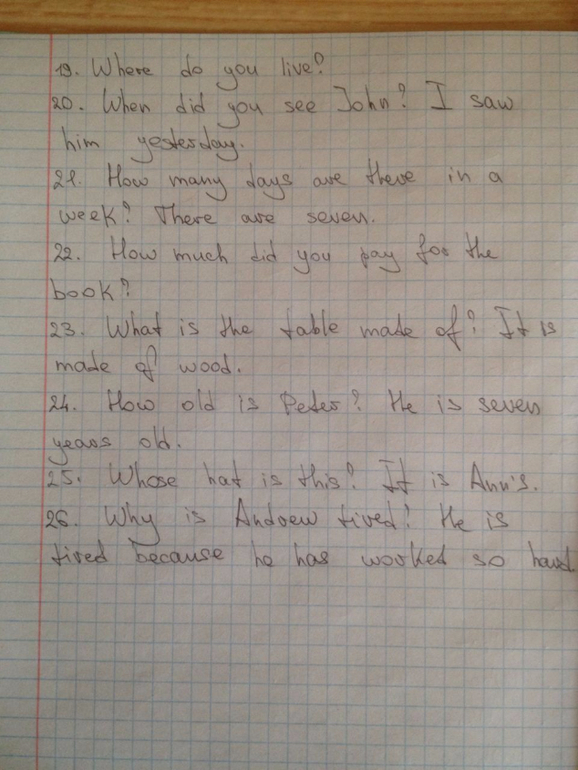 19. Where do you live?
20. When did you see John? I saw
him yesterday.
21. How many days are there in a
week? There are seven.
22. How much did you pay for the
book?
23. What is the table made of? It is
made of wood.
24. How old is Peter? He is seven
years old.
25. Whose hat is this? It is Ann's.
26. Why is Andrew tired? He is
tired because he has worked so hard.